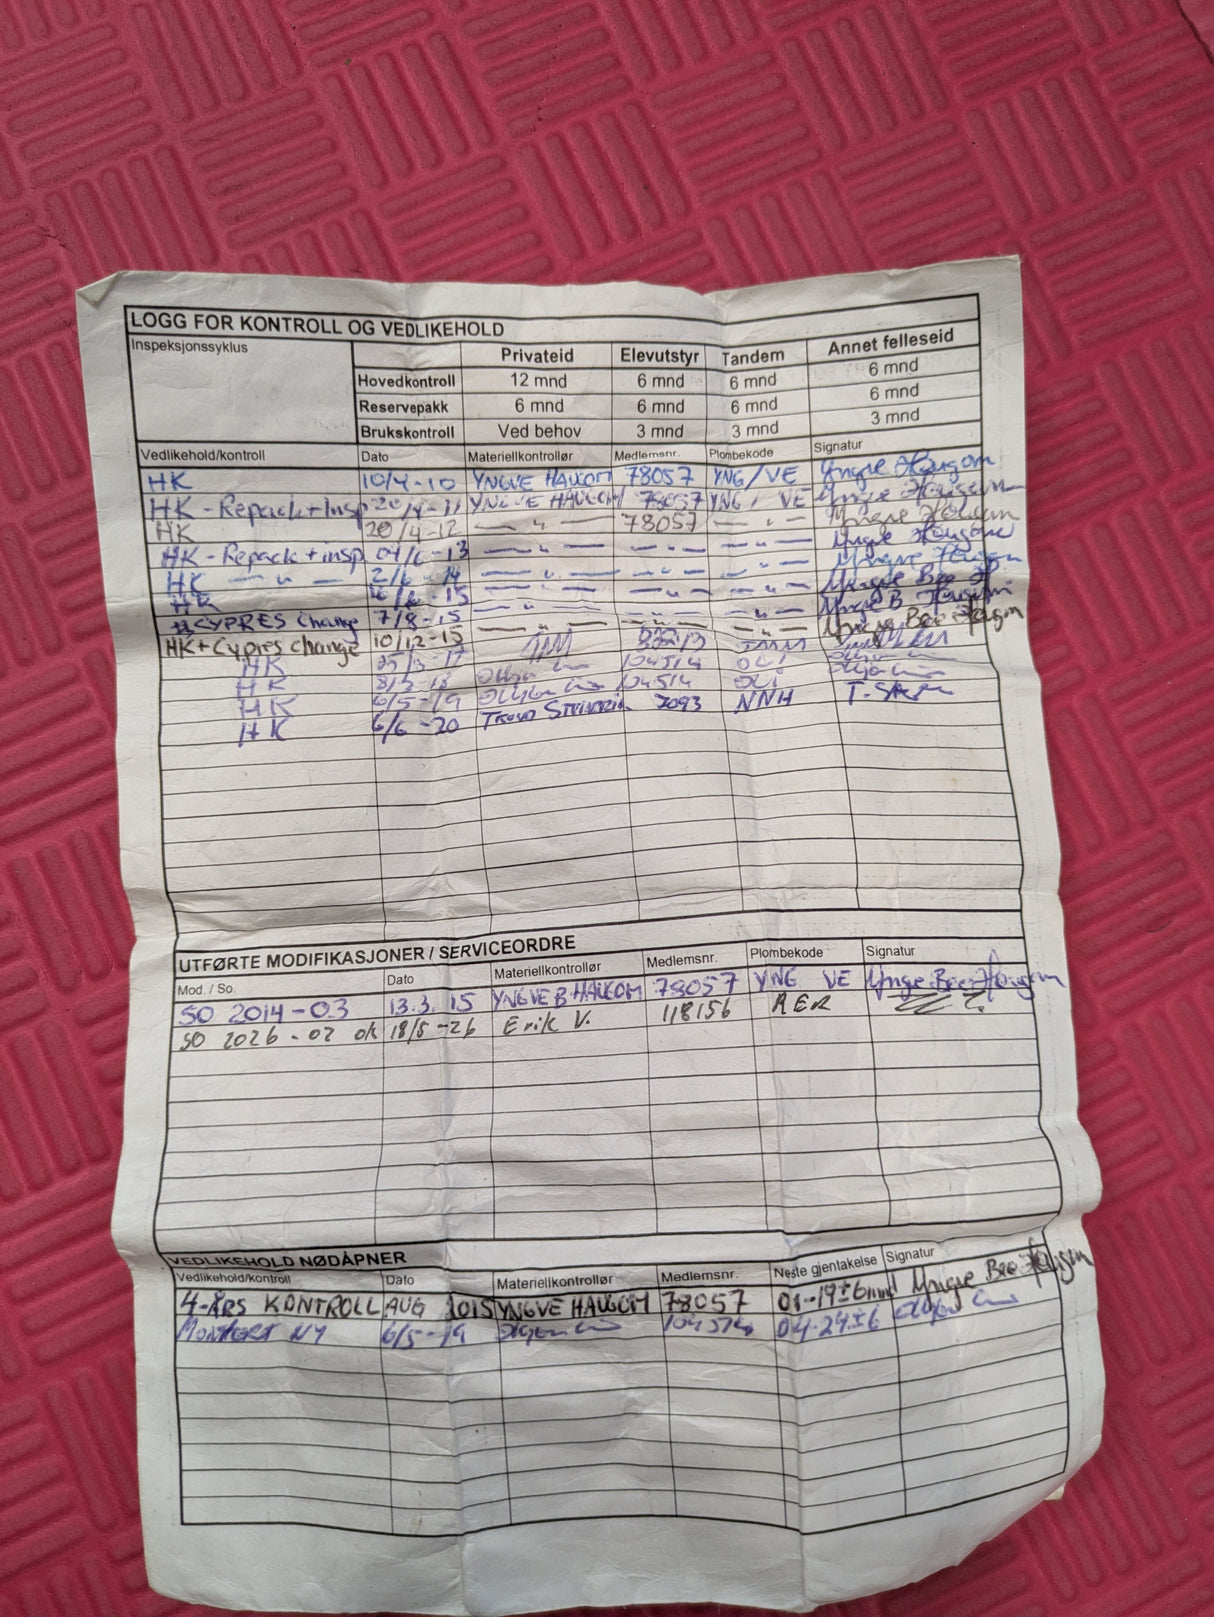 LOGG FOR KONTROLL OG VEDLIKEHOLD
Inspeksjonssyklus Privateid Elevutstyr Tandem Annet felleseid
Hovedkontroll 12 mnd 6 mnd 6 mnd 6 mnd
Reservepakk 6 mnd 6 mnd 6 mnd 6 mnd
Brukskontroll Ved behov 3 mnd 3 mnd 3 mnd
Vedlikehold/kontroll Dato Materiellkontrollør Medlemsnr. Plombekode Signatur
HK 10/4-10 YNGVE HAUGOM 78057 YNG/VE Yngve Haugom
HK - Repack + Insp 20/4-11 YNGVE HAUGOM 78057 YNG / VE Yngve Haugom
HK 20/4-12 — " — 78057 — " — Yngve Haugom
HK - Repack + insp — " — — " — — " — Yngve Haugom
HK — " — 2/6-14 — " — — " — — " — Yngve Haugom
HK — " — — " — — " — Yngve Bee
CYPRES Change 7/8-15 — " — — " — — " — Yngve B Haugom
HK + Cypres change 10/12-15 — " — — " — — " — Yngve Bee Haugom
HK 25/3-17
HK 8/5-18 104514 OLI
HK 6/5-19 104514 OLI
HK 6/6-20 7093 NNH
UTFØRTE MODIFIKASJONER / SERVICEORDRE
Mod. / So. Dato Materiellkontrollør Medlemsnr. Plombekode Signatur
SO 2014-03 13.3.15 YNGVE B HAUGOM 78057 YNG VE Yngve Bee Haugom
SO 2026-02 ok 18/5-26 Erik V. 118156 AER
VEDLIKEHOLD NØDÅPNER
Vedlikehold/kontroll Dato Materiellkontrollør Medlemsnr. Neste gjentakelse Signatur
4-ÅRS KONTROLL AUG 2015 YNGVE HAUGOM 78057 Yngve Bee Haugom
MONTERT NY 6/5-19 104514 04.24±6